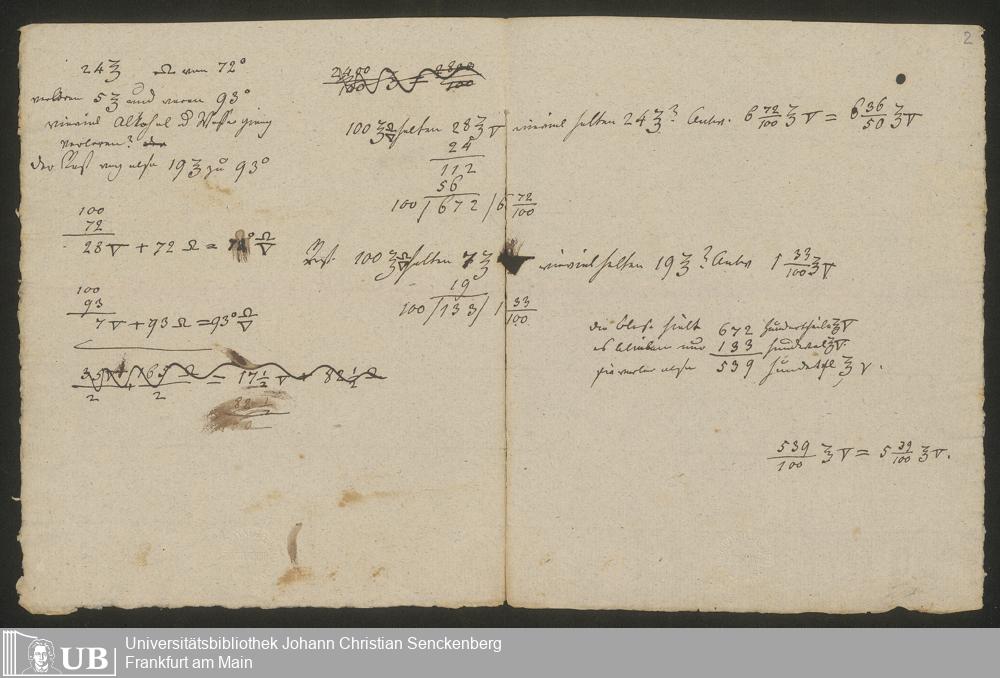 2
24 ℥ Ω von 72°
verloren 5 ℥ und waren 93°
wieviel Alkohol & Wasser ging
verloren?
der Rest wog also 19 ℥ zu 93°
100
72
28 ▽ + 72 Ω = 72° Ω/▽
100
93
7 ▽ + 93 Ω = 93° Ω/▽
35 ▽ + 165 Ω = 17 1/2 ▽ + 82 1/2 Ω
2 2
82 1/2
100 ℥ Ω/▽ halten 28 ℥ ▽ wieviel halten 24 ℥? Antw. 6 72/100 ℥ ▽ = 6 36/50 ℥ ▽
24
112
56
100 / 672 / 6 72/100
Rest 100 ℥ Ω/▽ halten 7 ℥ ▽ wieviel halten 19 ℥? Antw 1 33/100 ℥ ▽
19
100 / 133 / 1 33/100
die hielt 672 hundertheile ℥ ▽
es blieben nur 133 ℥ ▽
verlor also 539 ℥ ▽.
539/100 ℥ ▽ = 5 39/100 ℥ ▽.
UB
Universitätsbibliothek Johann Christian Senckenberg
Frankfurt am Main